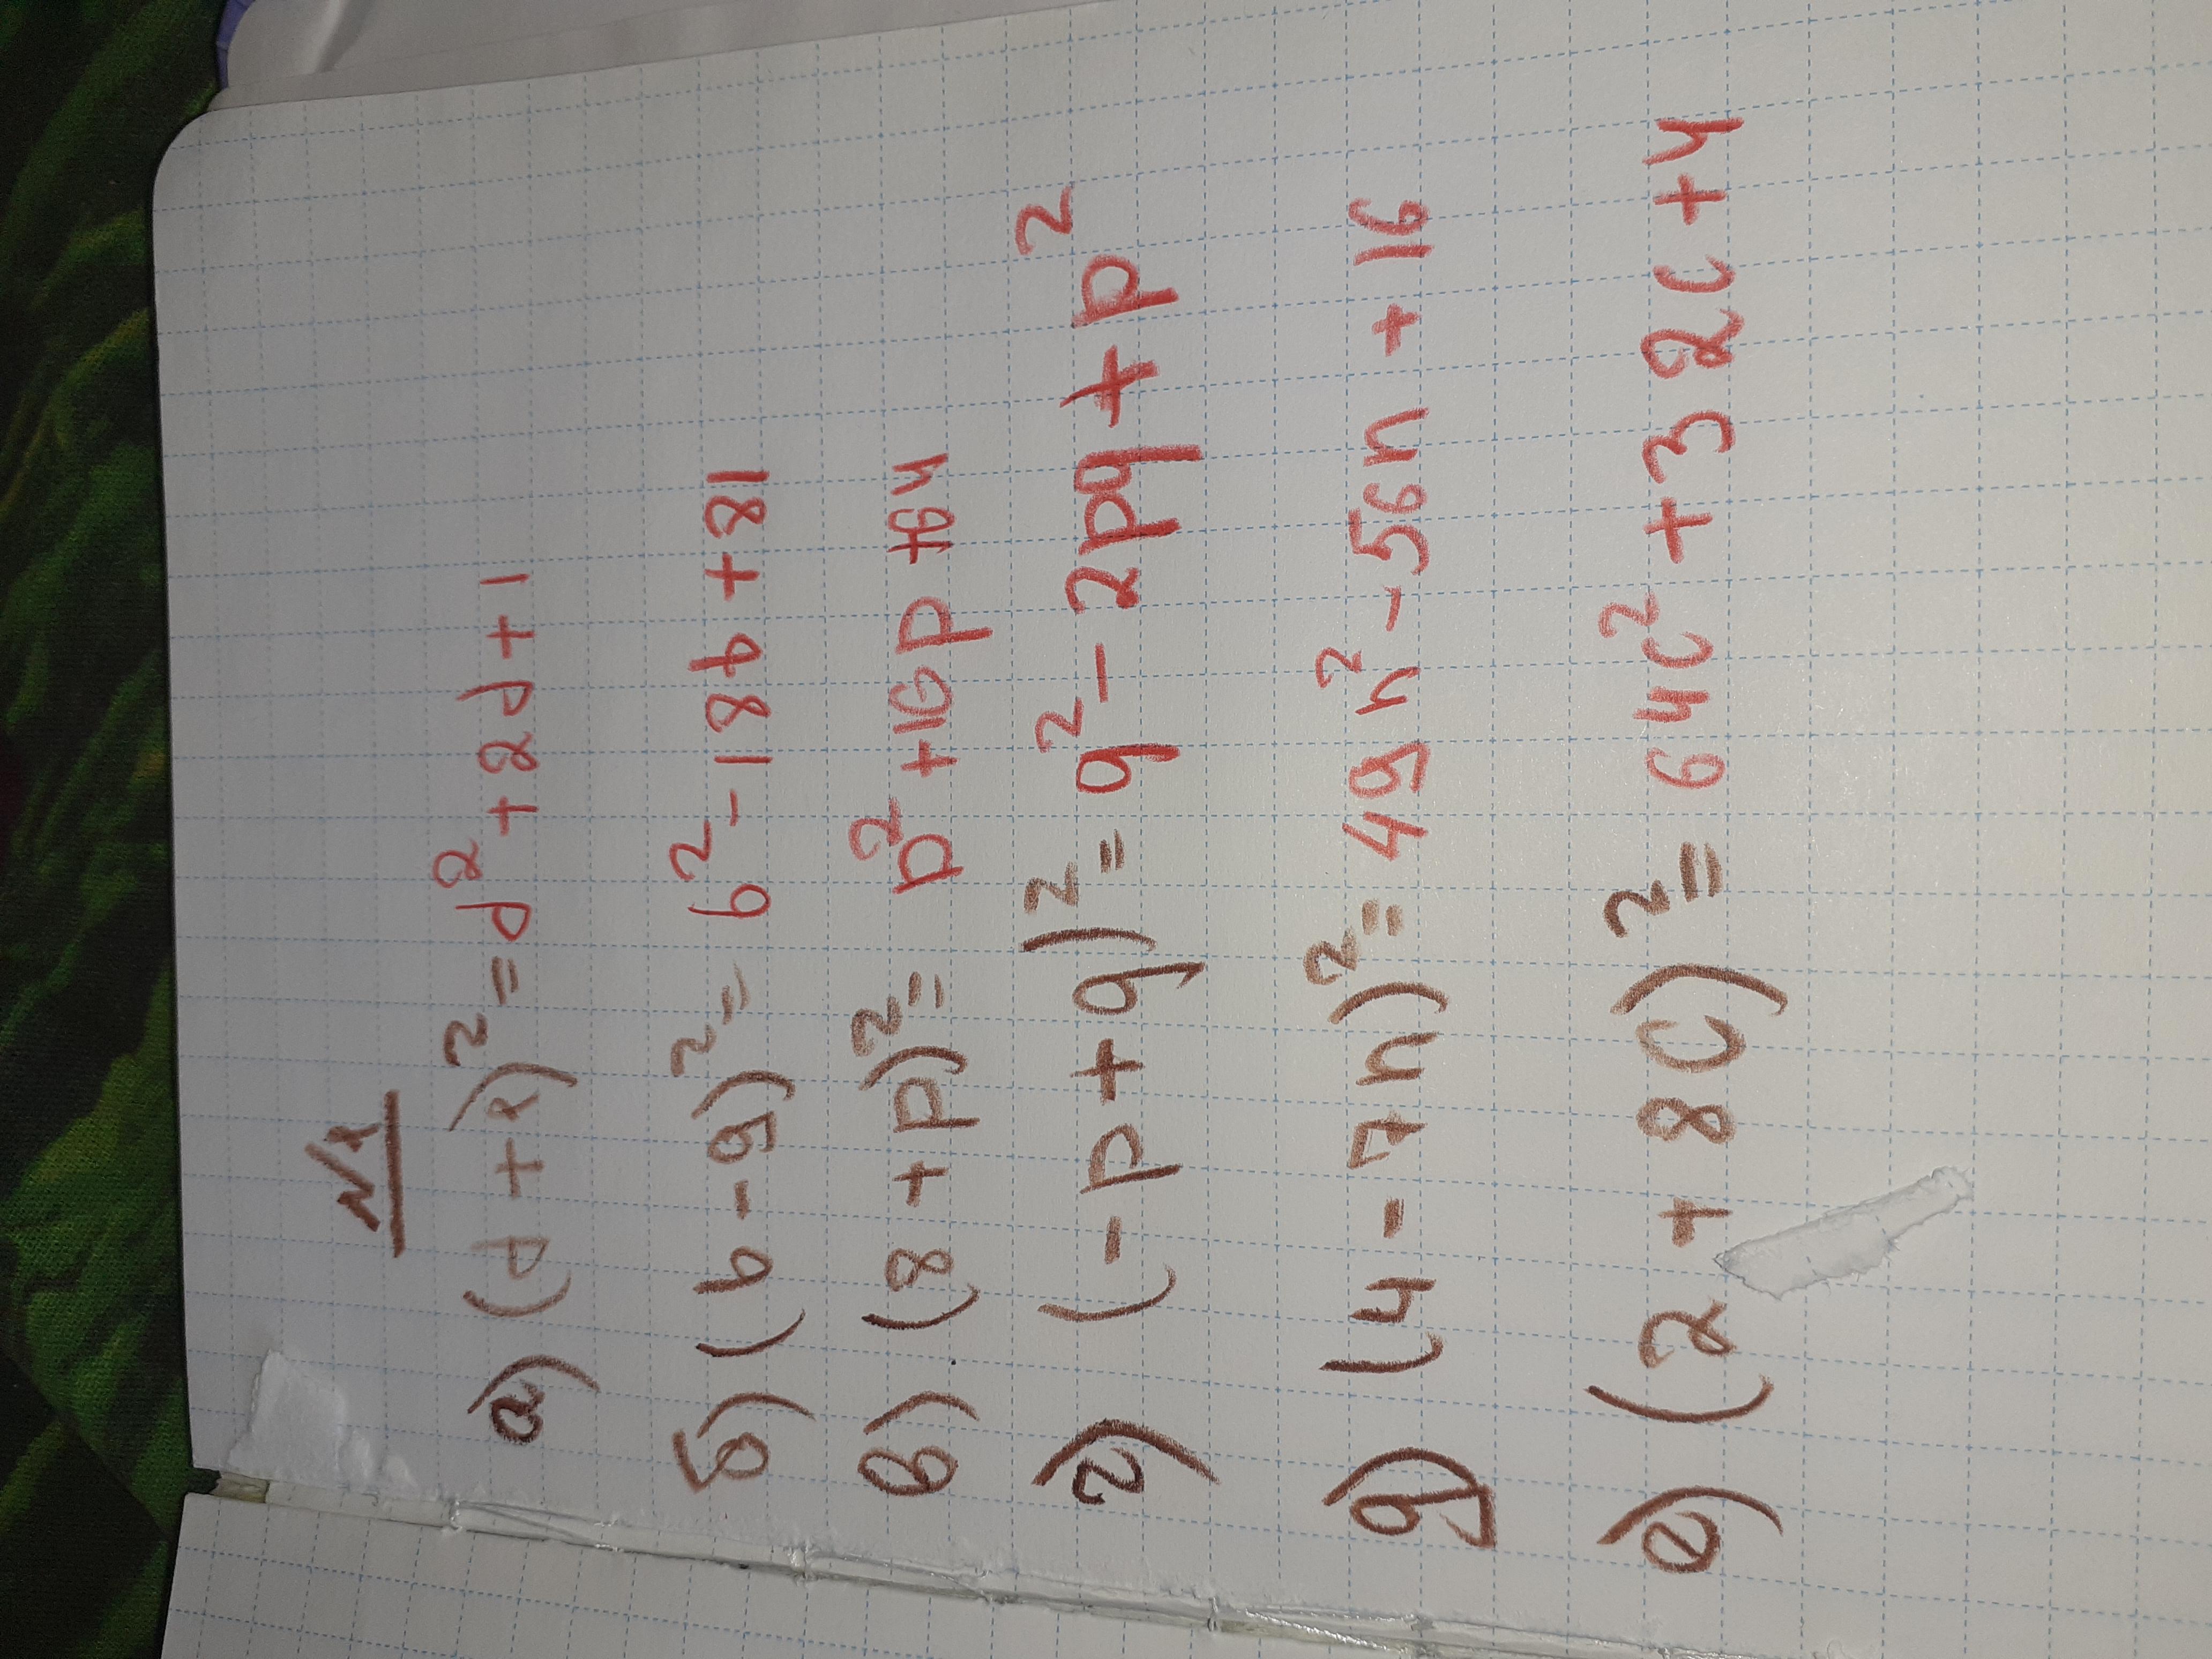 №1
а) (d+1)² = d² + 2d + 1
б) (b-9)² = b² - 18b + 81
в) (8+p)² = p² + 16p + 64
г) (-p+q)² = q² - 2pq + p²
д) (4-7n)² = 49n² - 56n + 16
е) (2+8c)² = 64c² + 32c + 4